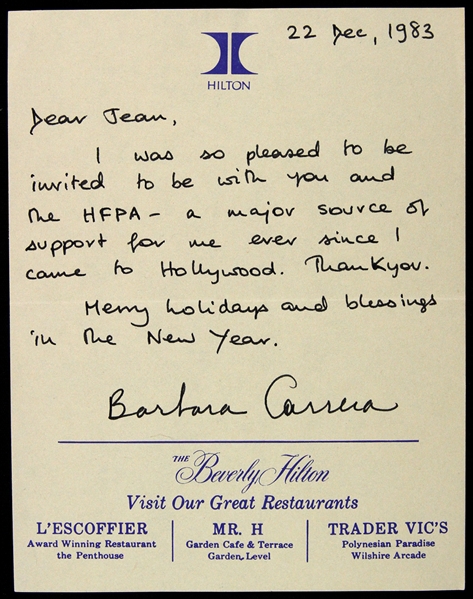 22 Dec, 1983
HILTON
Dear Jean,
I was so pleased to be
invited to be with you and
the HFPA – a major source of
support for me ever since I
came to Hollywood. Thankyou.
Merry holidays and blessings
in the New Year.
Barbara Carrera
THE Beverly Hilton
Visit Our Great Restaurants
L'ESCOFFIER
Award Winning Restaurant
the Penthouse
MR. H
Garden Cafe & Terrace
Garden Level
TRADER VIC'S
Polynesian Paradise
Wilshire Arcade